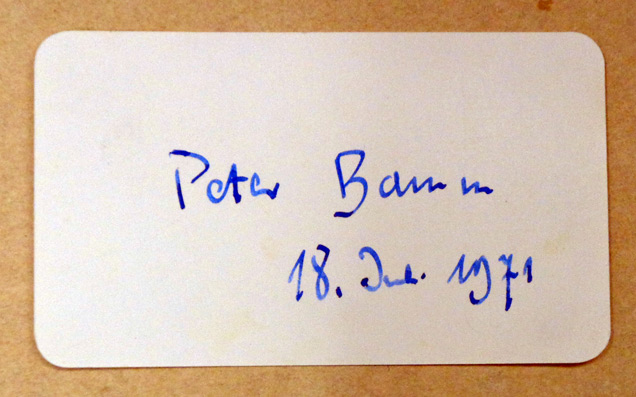 Peter Bamm
18. 1971